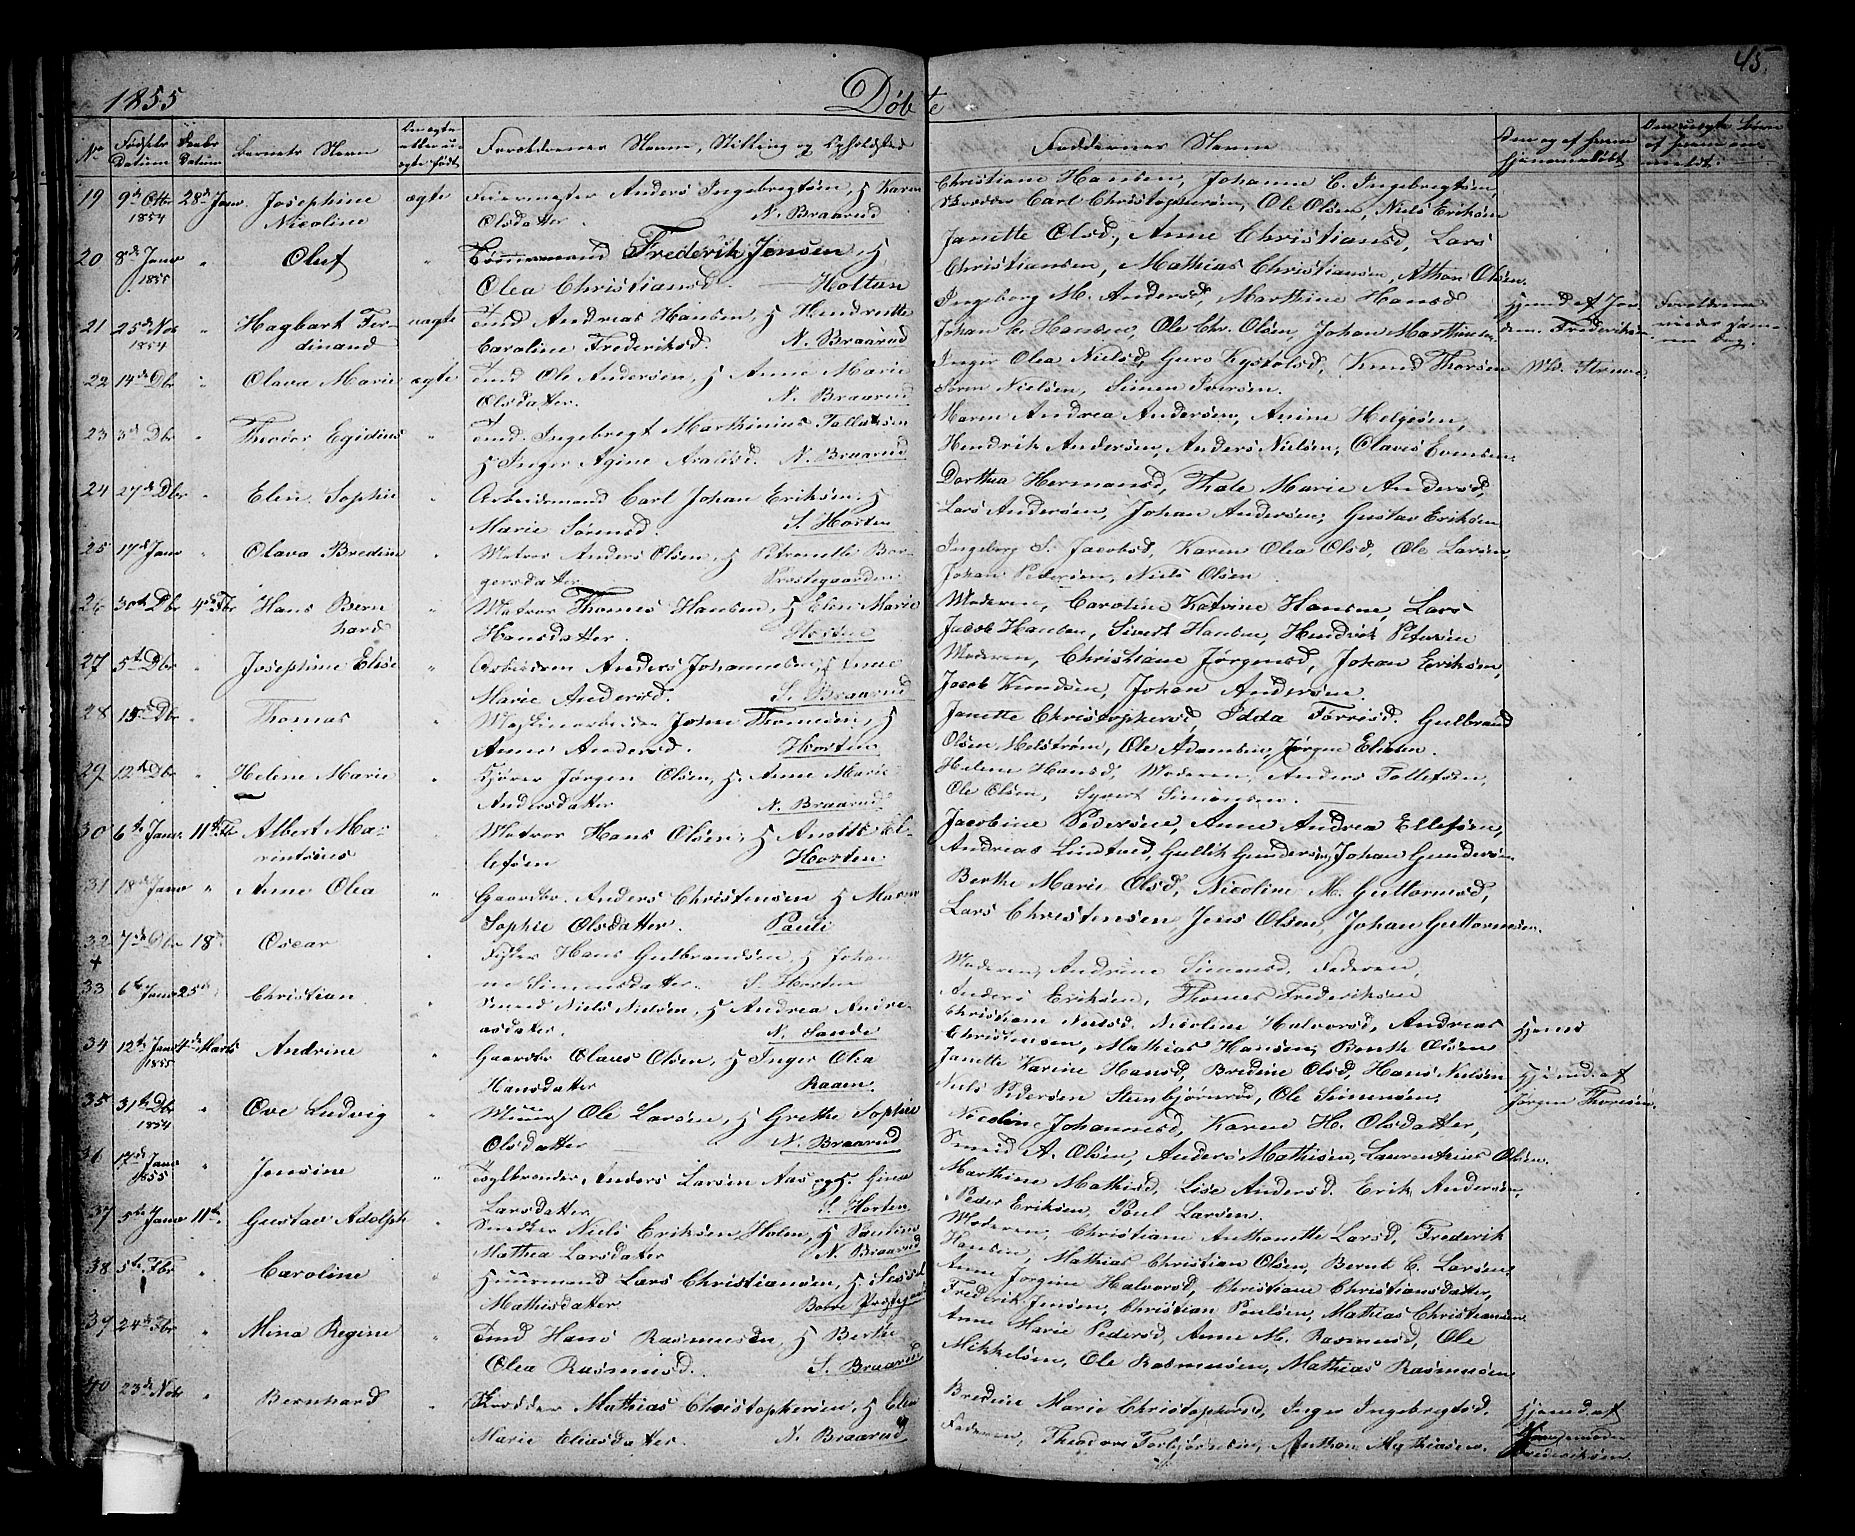 45.
1855 Døbte
No Fødsels Datum Daabs Datum Barnets Navn Om ægte eller uægte født Forældrenes Navne, Stilling og Opholdsted Faddernes Navne Om og af hvem hjemmedøbt Om uægte Børn af hvem anmeldt
19 9de Octbr 1854 28de Janr. Josephine Nicoline ægte Anders Ingebregtsen, & Karen
Olsdatter. N. Braarud
Christiane Hansen, Johanne C. Ingebregtsen,
Carl Christophersen, Ole Olsen, Niels Eriksen
20 8de Janr 1855 " Oluf " Tømmermand Frederik Jensen, &
Olea Christiansd. Holtan
Janette Olsd, Anne Christiansd, Lars
Christiansen, Mathias Christiansen, Olsen.
21 25de Nov 1854 " Hagbart Ferdinand uægte Tmd Andreas Hansen, & Hendrette
Caroline Frederiksd. N. Braarud
Ingeborg M. Andersd, Marthine Hansd
Johan C. Hansen, Ole Chr. Olsen, Johan Marthinsen.
Hjemd af Jordem. Frederiksen
22 14de Dbr " Olava Marie ægte Tmd Ole Andersen, & Anne Marie
Olsdatter. N. Braarud
Inger Olea Nielsd, Guro Knud Thorsen
Søren Nielsen, Simen Iversen.
23 3de Dbr " Theodor Egidius " Tmd. Ingebregt Marthinius Tollefsen
& Inger Agine N. Braarud
Maren Andrea Andersen, Anine Helgesen,
Hendrik Andersen, Anders Nielsen, Olaves Evensen.
24 27de Dbr " Elen Sophie " Arbeidsmand Carl Johan Eriksen, &
Marie Sørensd. S. Horten
Dorthea Hermansd, Thale Marie Andersd,
Lars Andersen, Johan Andersen, Gustav Eriksen
25 17de Janr " Olava Bredine " Matros Anders Olsen, & Petronelle Borgersdatter
Prestegaarden
Ingeborg S. Jacobsd, Karen Olea Olsd, Ole Larsen,
Johan Pedersen, Niels Olsen.
26 30te Dbr 4de Fbr Hans Bernhard " Matros Thomes Hansen, & Elen Marie
Hansdatter. Horten
Moderen, Caroline Katrine Hansne, Lars
Jacob Hansen, Sivert Hansen, Hendrik Petersen
27 5te Dbr " Josephine Elise " Arbeidsm Anders Johannesen, & Anne
Marie Andersd. S. Braarud
Moderen, Christiane Jørgensd, Johan Eriksen,
Jacob Knudsen, Johan Andersen.
28 15de Dbr " Thomas " John Thomesen, &
Anne Andersd. Horten
Janette Christophersd, Idda Gulbrand
Olsen Helstrøm, Ole Adamsen, Jørgen Eliesen.
29 12te Dbr " Helene Marie " Jørgen Olsen, & Anne Marie
Andersdatter N. Braarud
Helene Hansd, Moderen, Anders Tollefsen,
Ole Olsen, Syvert Simonsen.
30 6te Janr. 11te Fbr Albert Marintsius " Matros Hans Olsen, & Anette Ellefsen
Horten
Jacobine Pedersene, Anne Andrea Ellefsen,
Andreas Lindtvad, Gullik Gundersen, Johan Gundersen
31 18de Janr " Anne Olea " Gaardbr. Anders Christensen & Maren
Sophie Olsdatter. Pauli
Berthe Marie Olsd, Nicoline M. Guttormsd,
Lars Christensen, Jens Olsen, Johan Guttormsen.
32 7de Dbr 18de Oscar " Hans Gulbrandsen, & Johanne
Simensdatter. S. Horten
Moderen, Andrine Simensd, Faderen,
Anders Eriksen, Thomes Frederiksen
33 6te Janr 25de Christian " Smed Niels Nielsen, & Andrea Andreasdatter.
N. Sande
Christiane Nielsd. Nicoline Halvorsd, Andreas
Christensen, Mathias Hansen, Bernth Olsen
Hjemd
34 12te Janr 1855 4de Marts Andrine " Gaardbr Olaus Olsen, & Inger Olea
Hansdatter Raaen.
Janette Karine Hansd, Bredine Olsd, Hans Nielsen
Niels Pedersen Steinbjørnrød, Ole Simonsen.
Hjemd. af Jørgen Thoresen.
35 31te Dbr 1854 " Ove Ludvig " Ole Larsen, & Grethe Sophie
Olsdatter N. Braarud
Nicoline Johannesd, Karen H. Olsdatter,
Smed A. Olsen, Anders Mathisen, Laurenthius Olsen.
36 17de Janr 1855 " Jensine " Anders Larsen Aas og Gina
Larsdatter S. Horten
Marthine Mathisd, Lise Andersd. Erik Andersen,
Peder Eriksen, Poul Larsen.
37 5te Janr 11te Gustav Adolph " Niels Eriksen Holm, & Pauline
Mathea Larsdatter N. Braarud
Moderen, Christiane Anthonette Larsd, Frederik
Hansen, Mathias Christian Olsen, Bernt C. Larsen.
38 5te Fbr " Caroline " Huusmand Lars Christiansen, &
Mathisdatter Borre
Anne Jørgine Halvorsd, Christiane Christiansdatter,
Frederik Jensen, Christian Poulsen, Mathias Christiansen.
39 24de Fbr " Mina Regine " Tmd Hans Rasmussen, & Berthe
Olea Rasmusd. S. Braarud
Anne Marie Pedersd, Anne M. Rasmusd, Ole
Mikkelsen, Ole Rasmusen, Mathias Rasmusen
40 23de Nov " Bernhard " Mathias Christophersen, & Elen
Marie Eliasdatter. N. Braarud
Bredine Marie Christophersd, Inger Ingebregtsd.
Faderen, Theodore Torbjørnsen, Anthon Mathiasen.
Hjemd. af Jordemoder Frederiksen.